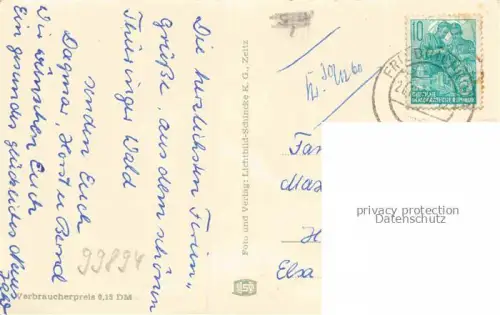 Die herzlichsten Ferien"
grüße, aus dem schönen
Thüringer Wald
senden Euch
Dagmar, Horst u. Bernd
Wir wünschen Euch
Ein gesundes glückliches Neues
Jahr
99894
Verbraucherpreis 0,15 DM
Foto und Verlag: Lichtbild-Schincke K. G., Zeitz
10
DEUTSCHE
DEMOKRATISCHE REPUBLIK
Fam
Max
H
Elsa
privacy protection
Datenschutz